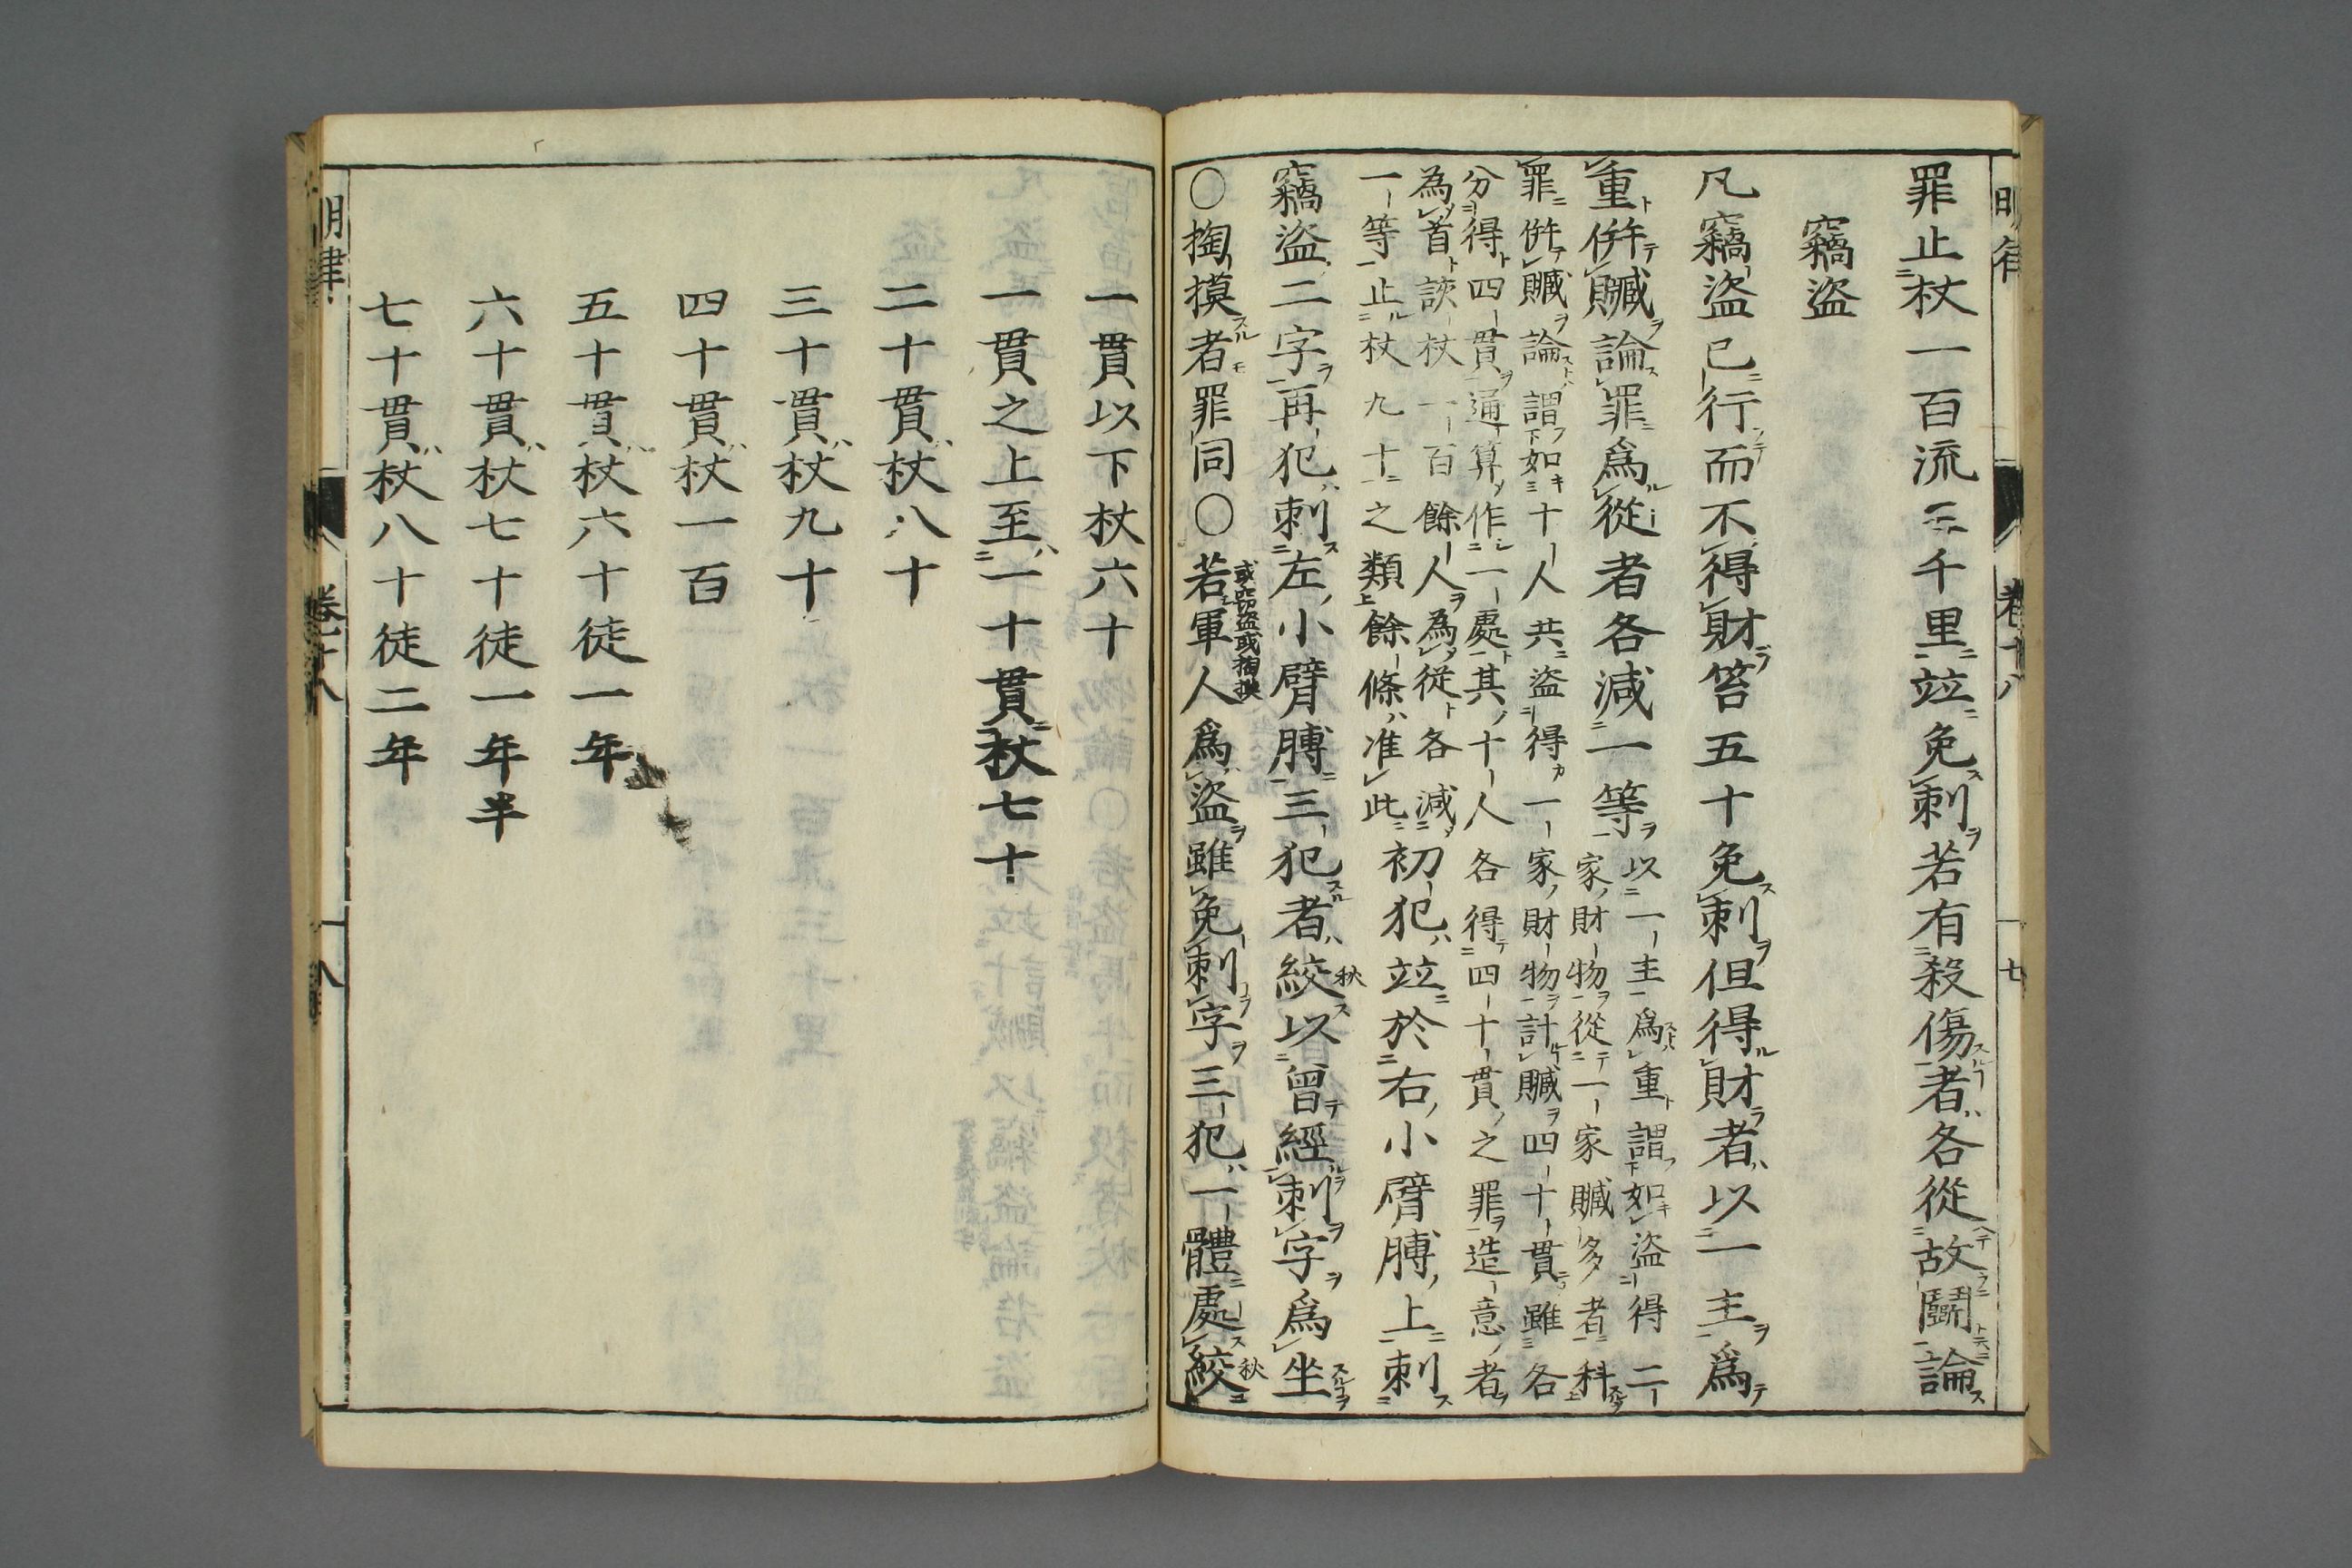 明律 卷十八 十七
罪止杖一百流三千里竝免刺若有殺傷者各從故鬭論
竊盜
凡竊盜已行而不得財笞五十免刺但得財者以一主爲
重倂贓論罪爲從者各減一等
以一主爲重謂如盜得二
家財物從一家贓多者科
罪倂贓論謂如十人共盜得一家財物計贓四十貫雖各
分得四貫通算作一處其十人各得四十貫之罪造意者
為首該杖一百餘人為從各減
一等止杖九十之類餘條准此
初犯竝於右小臂膊上刺
竊盜二字再犯刺左小臂膊三犯者絞秋以曾經刺字爲坐
○掏摸者罪同○若軍人爲盜雖免刺字三犯一體處絞秋
或竊盜或掏摸
一貫以下杖六十
一貫之上至一十貫杖七十
二十貫杖八十
三十貫杖九十
四十貫杖一百
五十貫杖六十徒一年
六十貫杖七十徒一年半
七十貫杖八十徒二年
明律 卷十八 十八